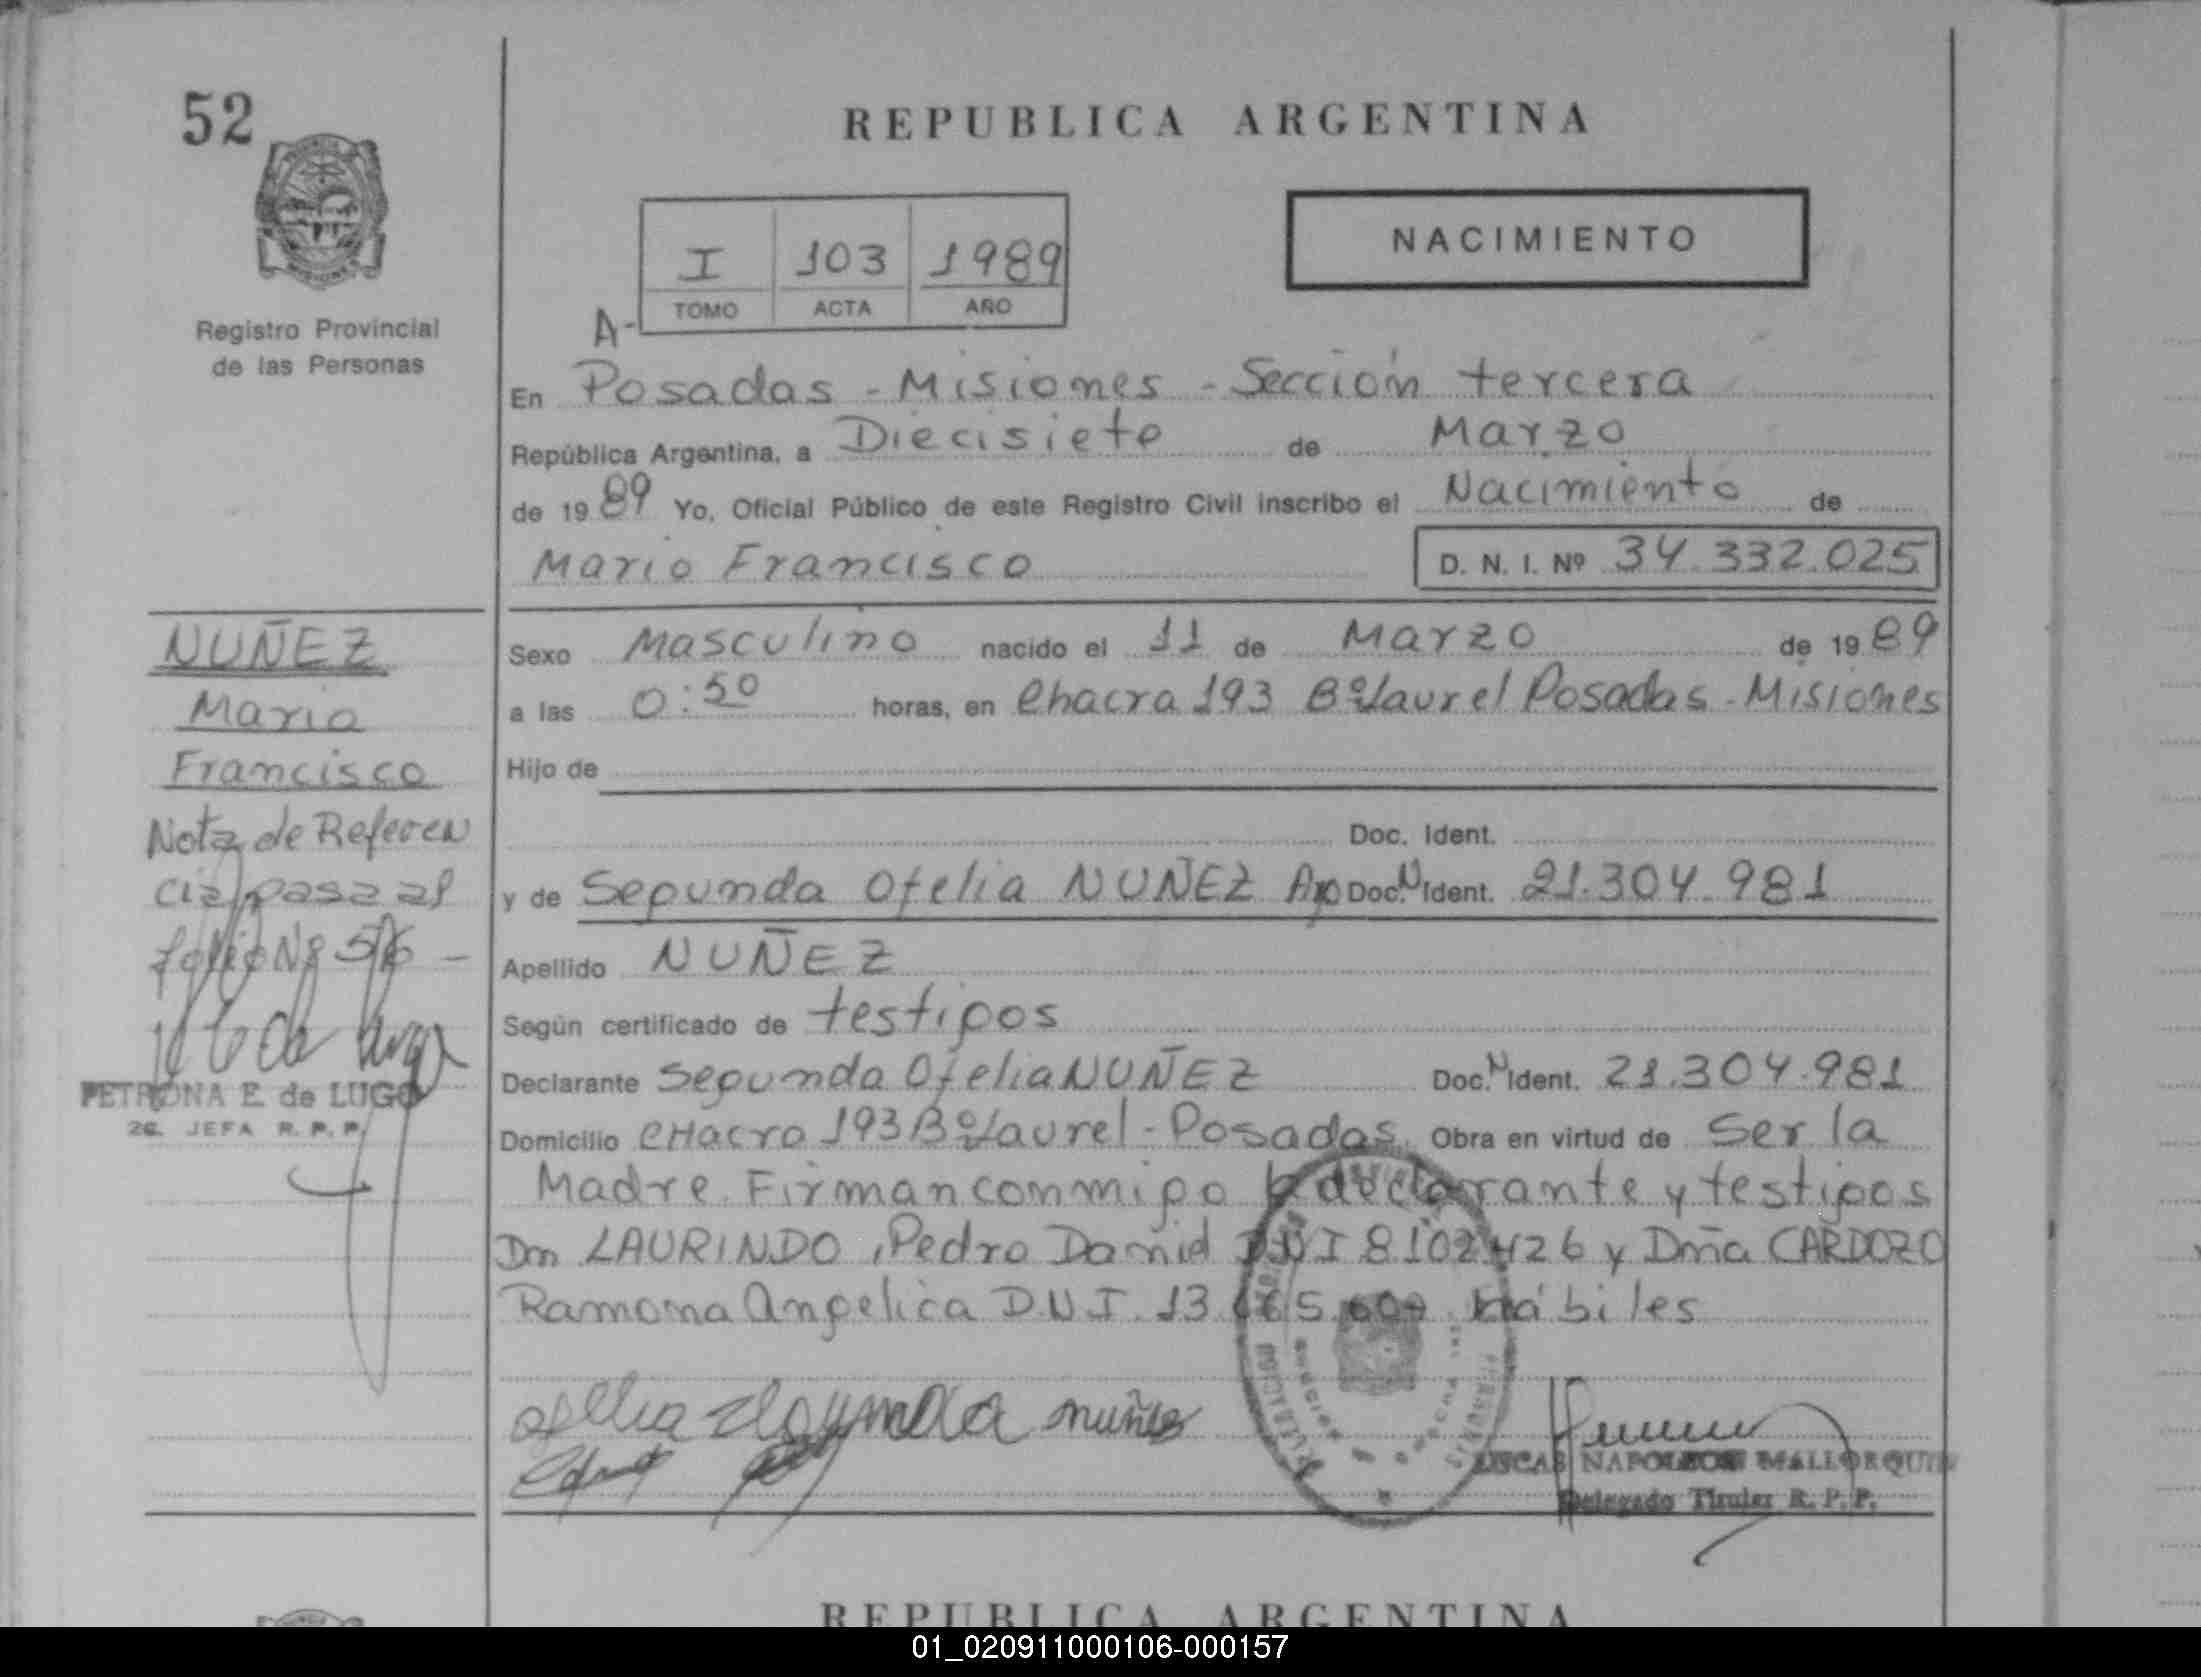 52
REPUBLICA ARGENTINA
NACIMIENTO
I 103 1989
TOMO ACTA AÑO
A-
Registro Provincial
de las Personas
En Posadas - Misiones - Sección tercera
República Argentina, a Diecisiete de Marzo
de 1989 Yo, Oficial Público de este Registro Civil inscribo el Nacimiento de
Mario Francisco D. N. I. Nº 34.332.025
NUÑEZ
Mario
Francisco
Nota de Referen
cia pasa al
folio Nº 56 -
PETRONA E. de LUGO
2a. JEFA R. P. P.
Sexo Masculino nacido el 11 de Marzo de 1989
a las 0:50 horas, en Chacra 193 Bº Laurel Posadas - Misiones
Hijo de
Doc. Ident.
y de Segunda Ofelia NUÑEZ Arg Doc. N Ident. 21.304.981
Apellido NUÑEZ
Según certificado de testigos
Declarante Segunda Ofelia NUÑEZ Doc. N Ident. 21.304.981
Domicilio CHacra 193 Bº Laurel - Posadas. Obra en virtud de Ser la
Madre. Firman conmigo la declarante y testigos
Dn LAURINDO, Pedro Daniel DNI 8102426 y Dña CARDOZO
Ramona Angelica D.N.I. 13 hábiles
ofelia segunda nuñez
LUCAS NAPOLEON MALLORQUIN
Delegado Titular R. P. P.
REPUBLICA ARGENTINA
01_020911000106-000157